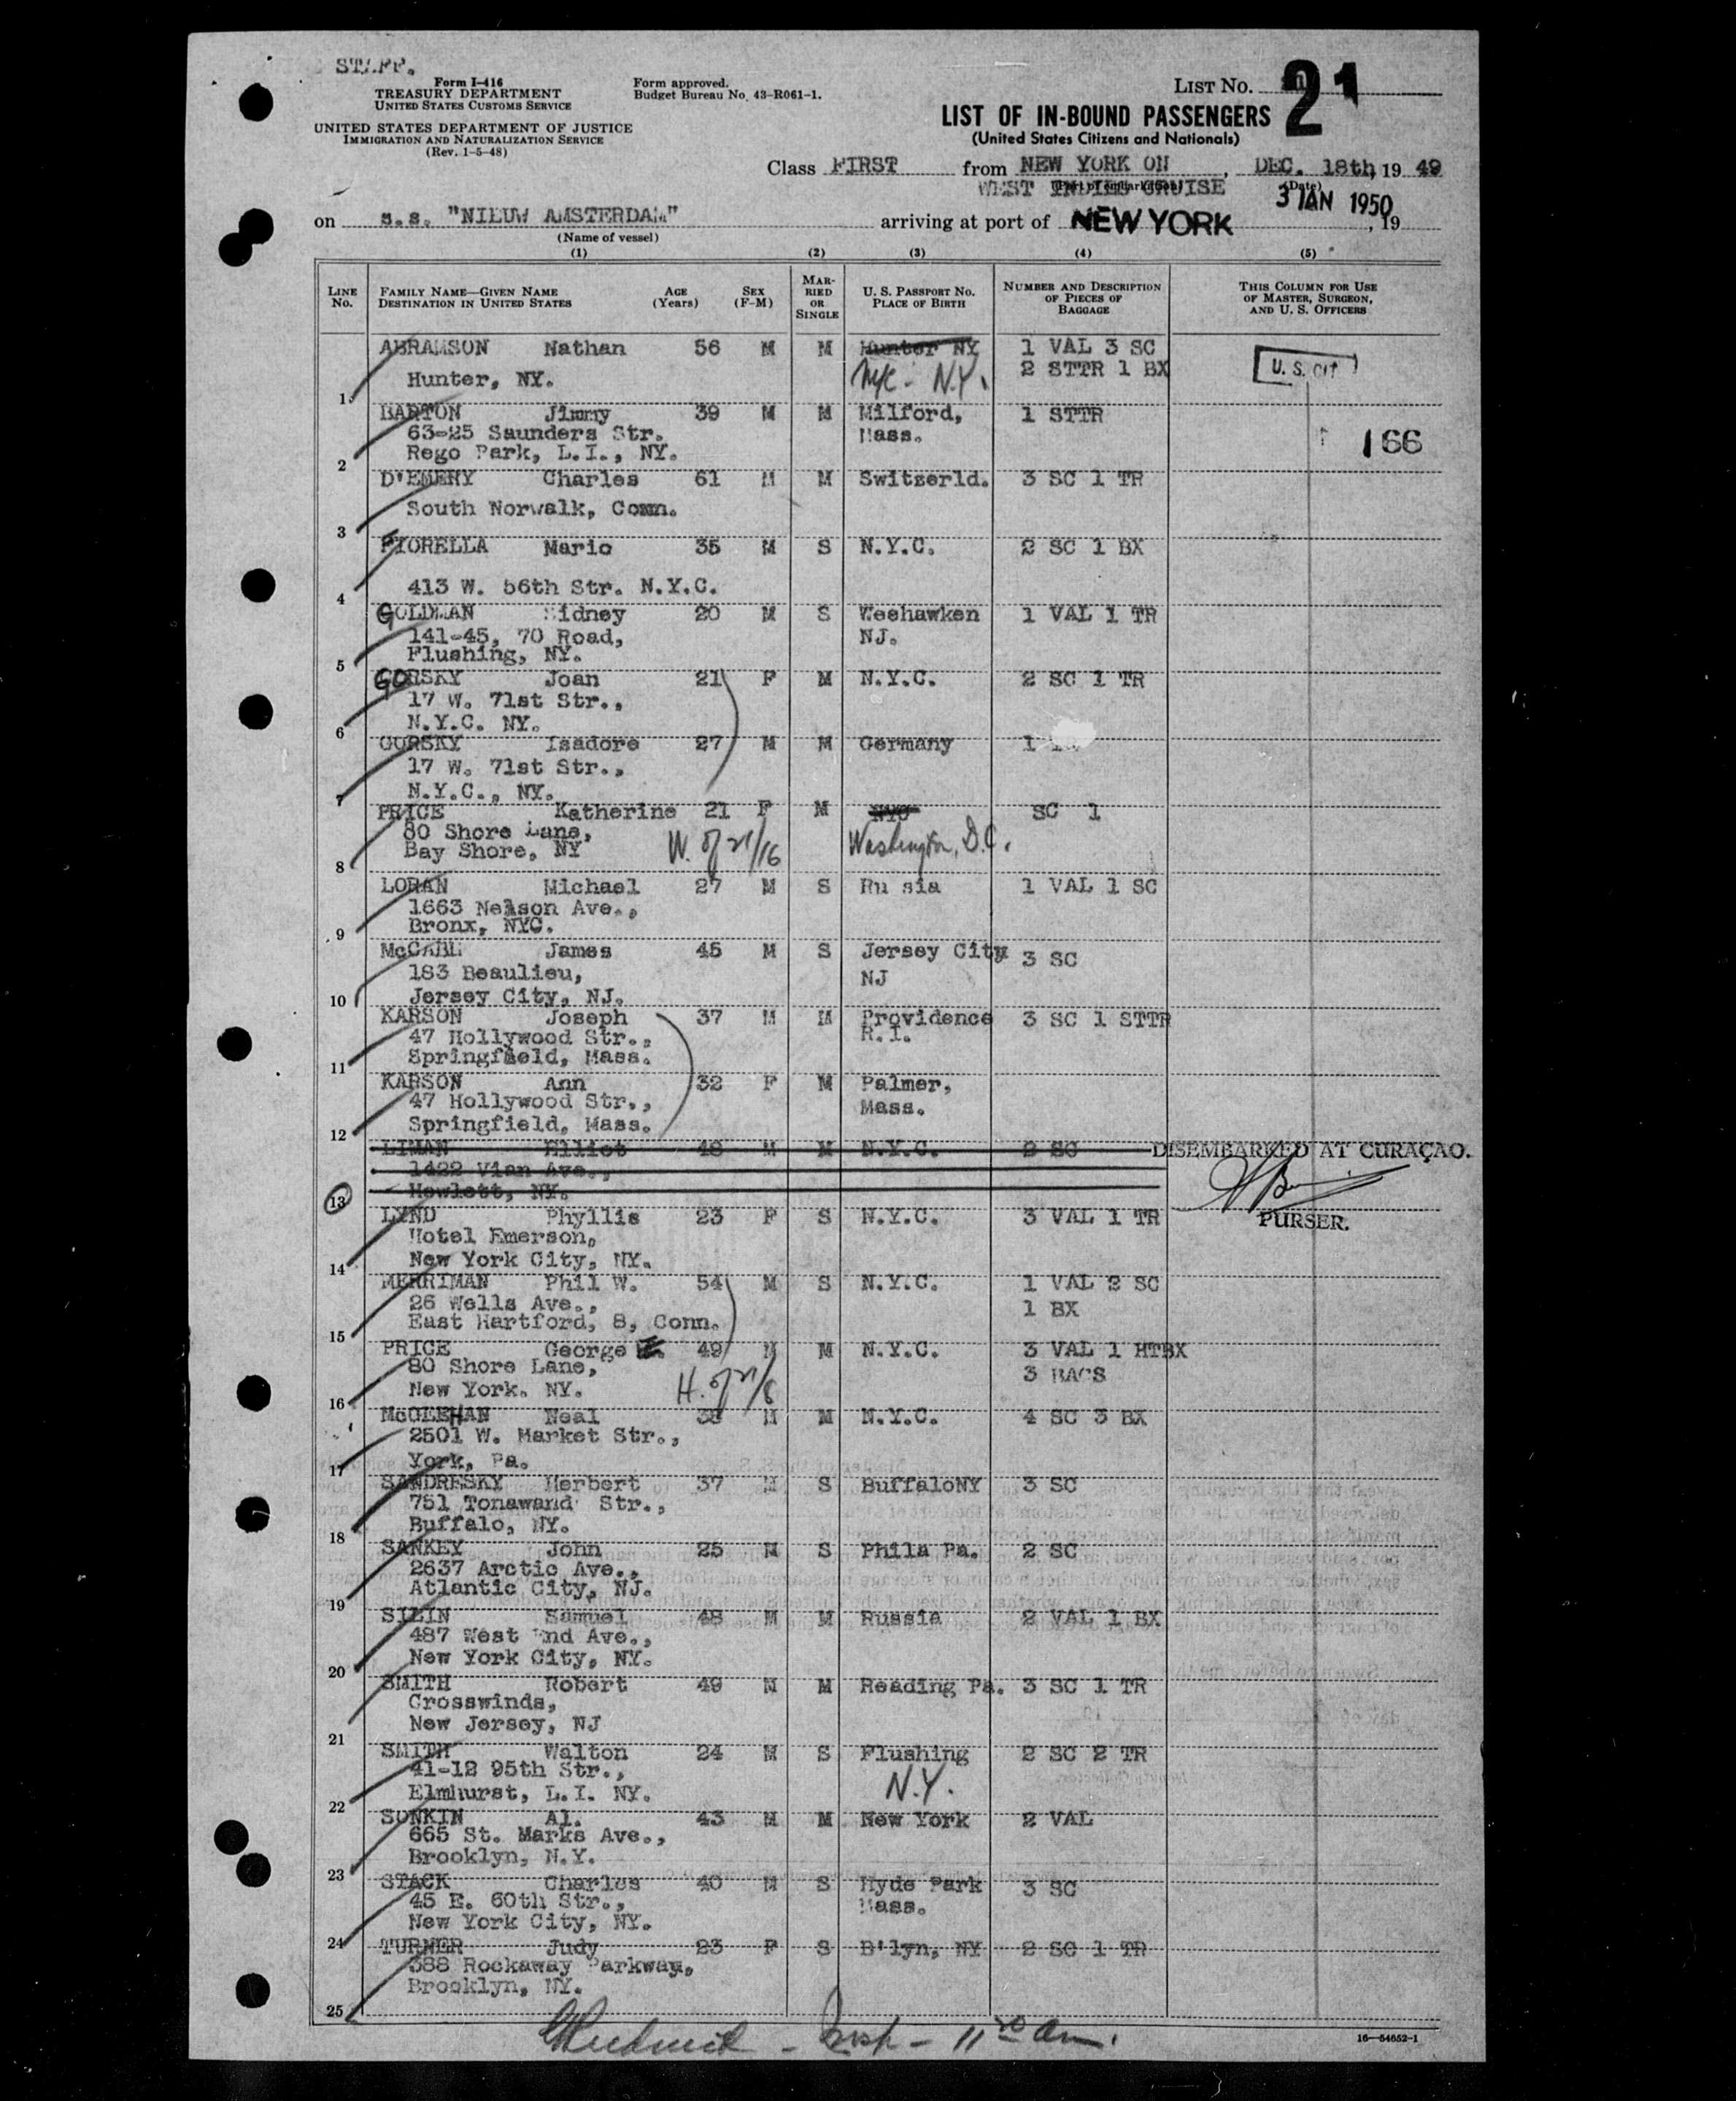 STAFF.
Form I-416
TREASURY DEPARTMENT
UNITED STATES CUSTOMS SERVICE
UNITED STATES DEPARTMENT OF JUSTICE
IMMIGRATION AND NATURALIZATION SERVICE
(Rev. 1-5-48)
Form approved.
Budget Bureau No. 43-R061-1.
LIST No. 21
LIST OF IN-BOUND PASSENGERS
(United States Citizens and Nationals)
Class FIRST from NEW YORK ON, DEC. 18th, 19 49
WEST INDIES CRUISE
(Port of embarkation) (Date)
3 JAN 1950
on s.s. "NIEUW AMSTERDAM" arriving at port of NEW YORK, 19
(Name of vessel)
(1) (2) (3) (4) (5)
LINE No. FAMILY NAME—GIVEN NAME DESTINATION IN UNITED STATES AGE (Years) SEX (F-M) MARRIED OR SINGLE U. S. PASSPORT NO. PLACE OF BIRTH NUMBER AND DESCRIPTION OF PIECES OF BAGGAGE THIS COLUMN FOR USE OF MASTER, SURGEON, AND U. S. OFFICERS
ABRAMSON Nathan 56 M M Hunter NY 1 VAL 3 SC
NYC - N.Y. 2 STTR 1 BX U. S. CIT
Hunter, NY.
1
BARTON Jimmy 39 M M Milford, 1 STTR
63-25 Saunders Str. Mass. 166
Rego Park, L.I., NY.
2
D'EMERY Charles 61 M M Switzerld. 3 SC 1 TR
South Norwalk, Conn.
3
FIORELLA Mario 35 M S N.Y.C. 2 SC 1 BX
413 W. 56th Str. N.Y.C.
4
GOLDMAN Sidney 20 M S Weehawken 1 VAL 1 TR
141-45, 70 Road, NJ.
Flushing, NY.
5
GORSKY Joan 21 F M N.Y.C. 2 SC 1 TR
17 W. 71st Str.,
N.Y.C. NY.
6
GORSKY Isadore 27 M M Germany 1
17 W. 71st Str.,
N.Y.C., NY.
7
PRICE Katherine 21 F M NYC SC 1
80 Shore Lane,
Bay Shore, NY W. of 21/16 Washington, D.C.
8
LORAN Michael 27 M S Ru sia 1 VAL 1 SC
1663 Nelson Ave.,
Bronx, NYC.
9
McCABE James 45 M S Jersey City 3 SC
183 Beaulieu, NJ
Jersey City, NJ.
10
KARSON Joseph 37 M M Providence 3 SC 1 STTR
47 Hollywood Str., R.I.
Springfield, Mass.
11
KARSON Ann 32 F M Palmer,
47 Hollywood Str., Mass.
Springfield, Mass.
12
LIMAN Elliot 48 M M N.Y.C. 2 SC DISEMBARKED AT CURAÇAO.
1422 Vian Ave.,
Hewlett, NY.
13
LYND Phyllis 23 F S N.Y.C. 3 VAL 1 TR PURSER.
Hotel Emerson,
New York City, NY.
14
MERRIMAN Phil W. 54 M S N.Y.C. 1 VAL 2 SC
26 Wells Ave., 1 BX
East Hartford, 8, Conn.
15
PRICE George 49 M M N.Y.C. 3 VAL 1 HTBX
80 Shore Lane, 3 BAGS
New York. NY. H. of 21/8
16
McGLEHAN Neal 38 M M N.Y.C. 4 SC 3 BX
2501 W. Market Str.,
York, Pa.
17
SANDRESKY Herbert 37 M S BuffaloNY 3 SC
751 Tonawand Str.,
Buffalo, NY.
18
SANKEY John 25 M S Phila Pa. 2 SC
2637 Arctic Ave.,
Atlantic City, NJ.
19
SILIN Samuel 48 M M Russia 2 VAL 1 BX
487 West End Ave.,
New York City, NY.
20
SMITH Robert 49 M M Reading Pa. 3 SC 1 TR
Crosswinds,
New Jersey, NJ
21
SMITH Walton 24 M S Flushing 2 SC 2 TR
41-12 95th Str.,
Elmhurst, L.I. NY. N.Y.
22
SONKIN Al. 43 M M New York 2 VAL
665 St. Marks Ave.,
Brooklyn, N.Y.
23
STACK Charles 40 M S Hyde Park 3 SC
45 E. 60th Str., Mass.
New York City, NY.
24
TURNER Judy 23 F S B'lyn, NY 2 SC 1 TR
388 Rockaway Parkway,
Brooklyn, NY.
25
Insp - 11 30 am.
16—54652-1